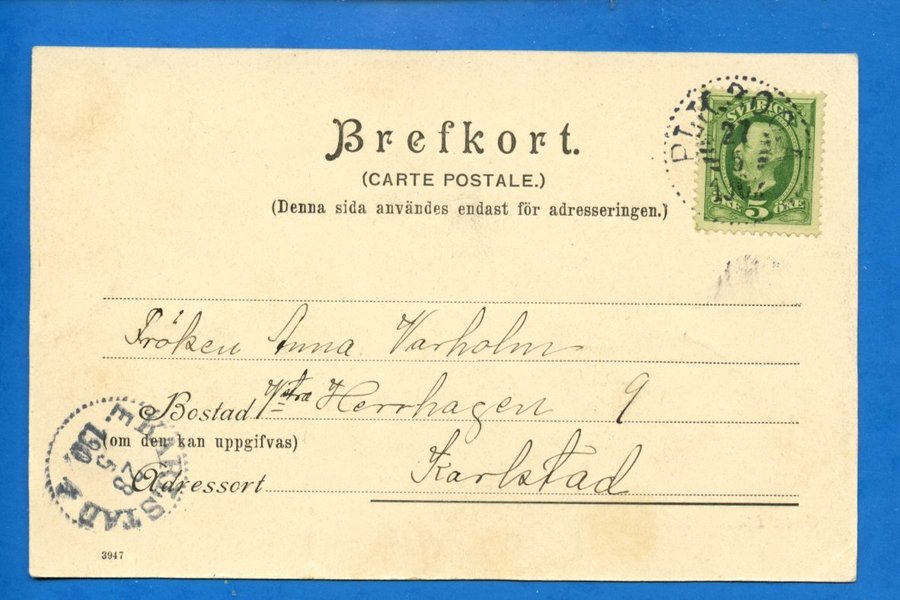 Brefkort.
(CARTE POSTALE.)
(Denna sida användes endast för adresseringen.)
SVERIGE
27
5
5 ÖRE
Fröken Anna Varholm
Bostad Vstra Herrhagen 9
(om den kan uppgifvas)
Adressort Karlstad
KARLSTAD
28
5
190
3947